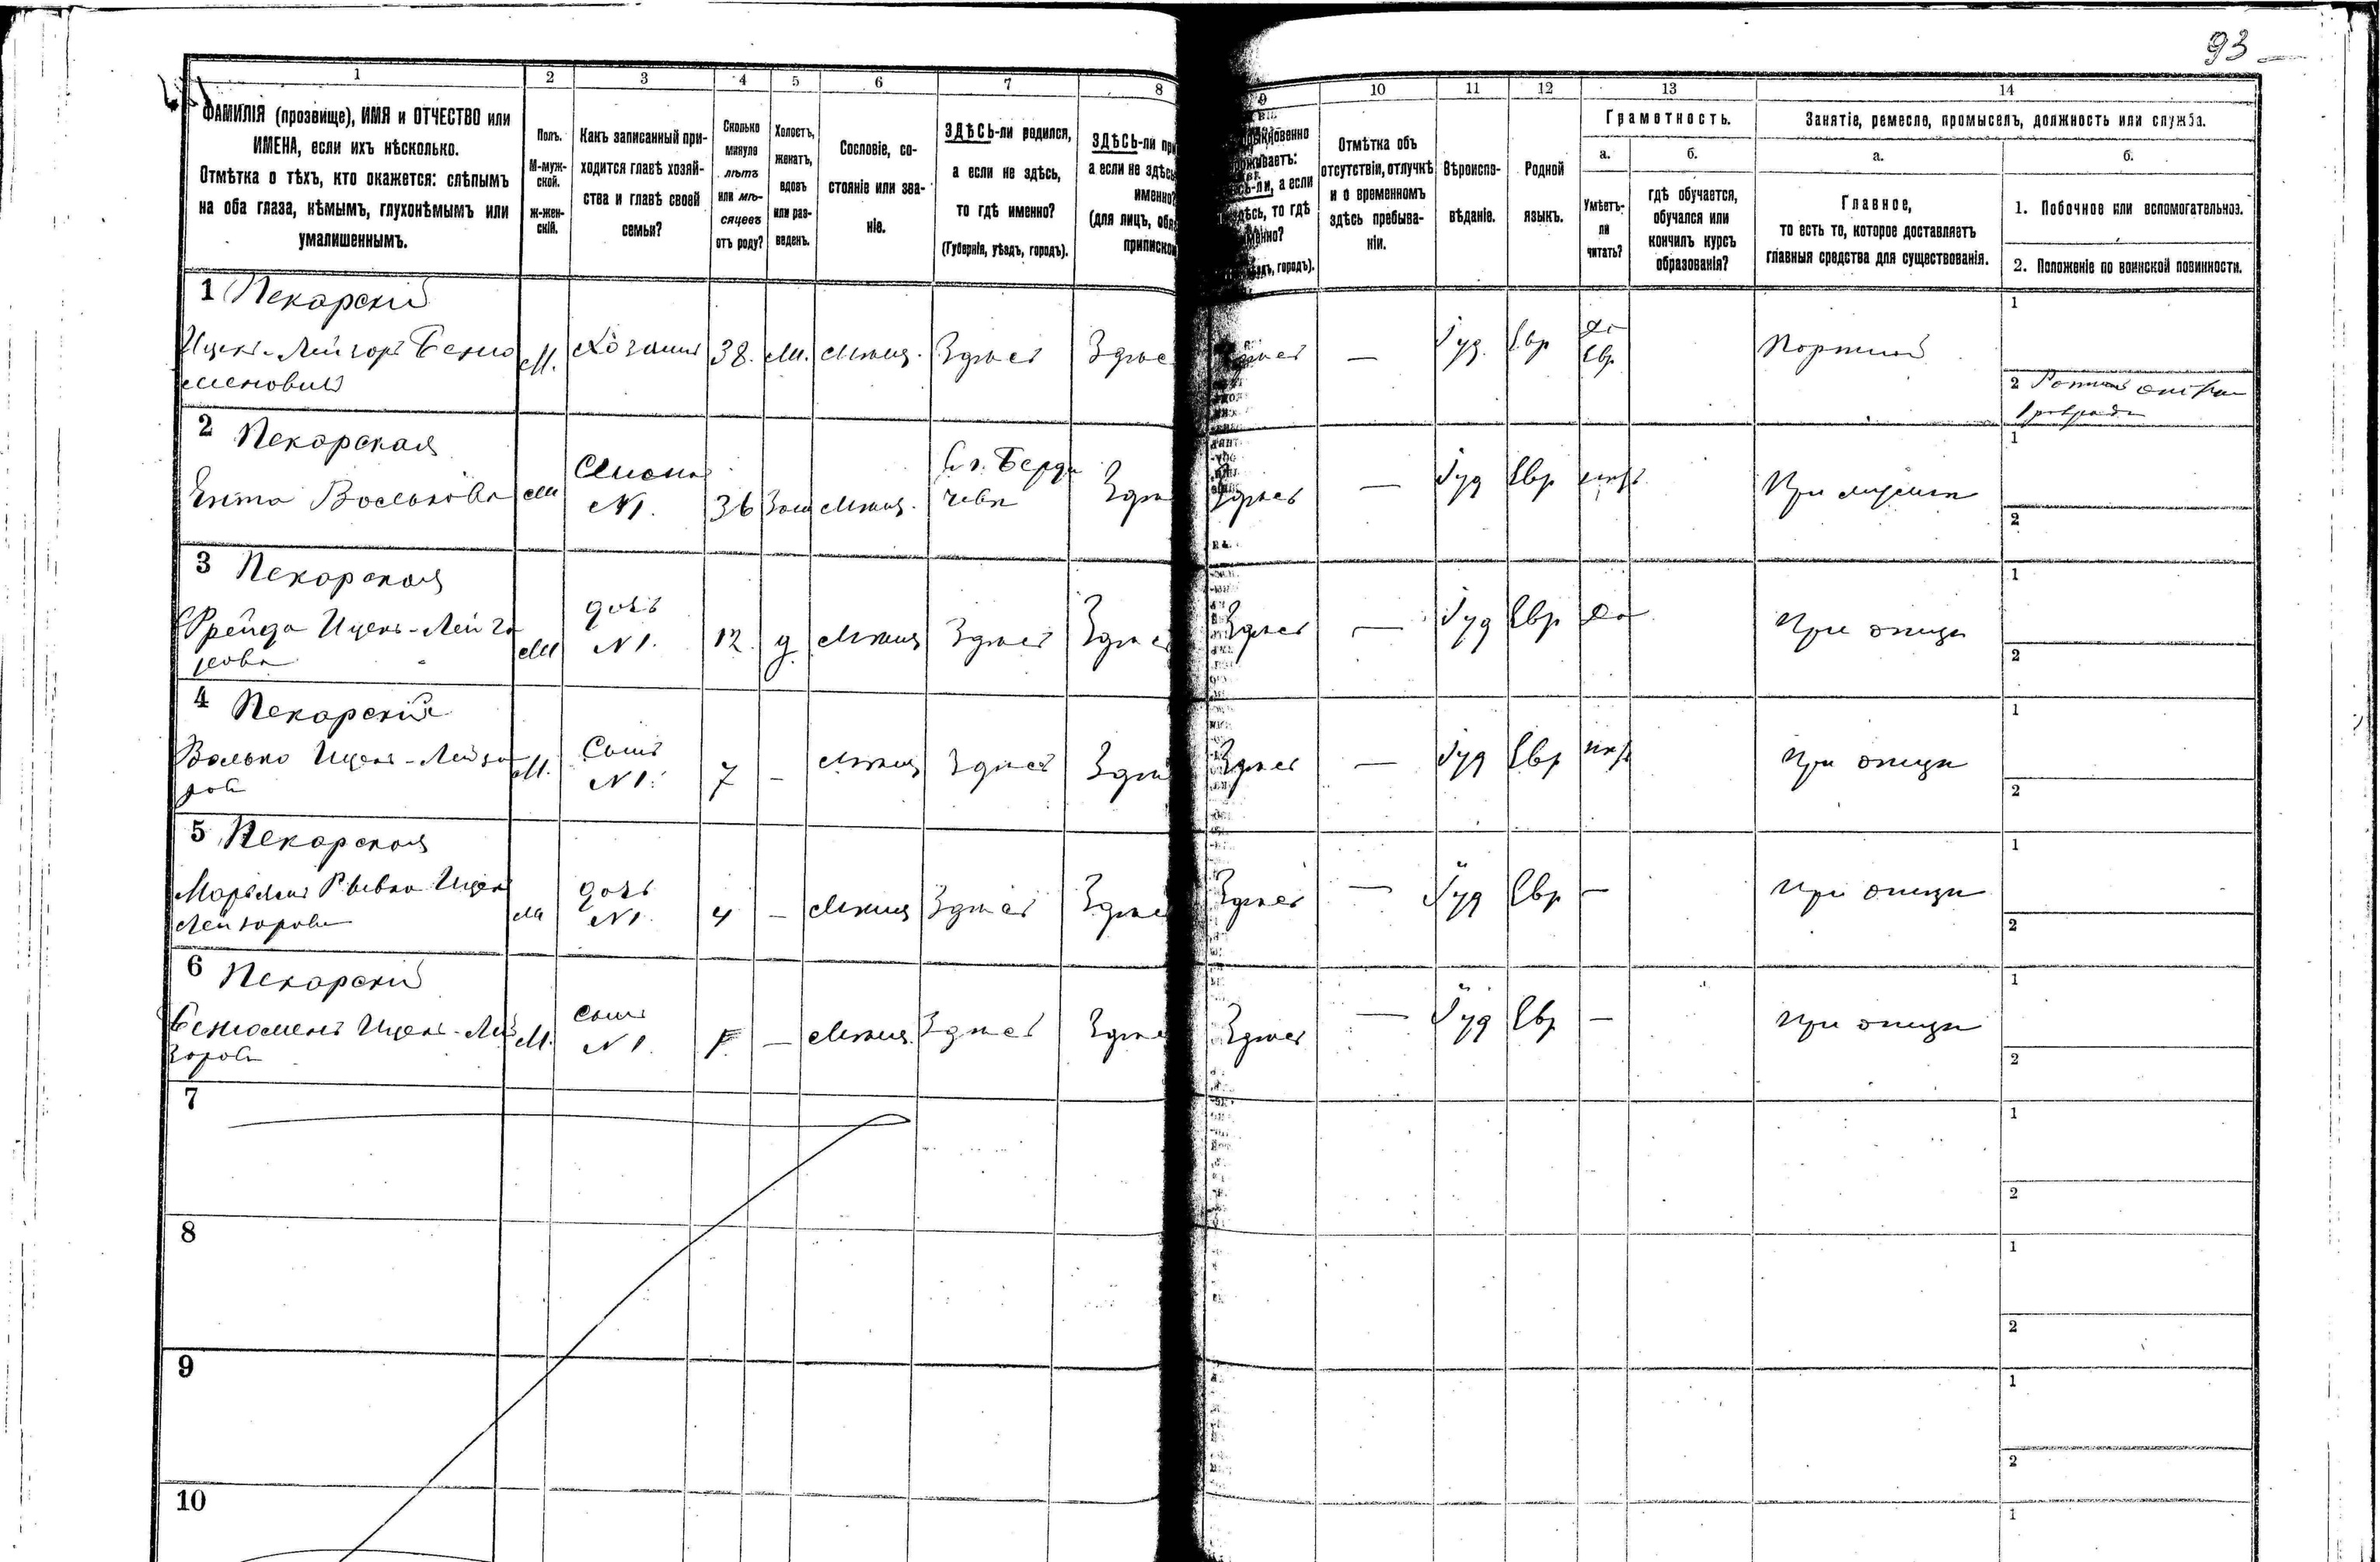 93
1 2 3 4 5 6 7 8 9 10 11 12 13 14
ФАМИЛІЯ (прозвище), ИМЯ и ОТЧЕСТВО или
ИМЕНА, если ихъ нѣсколько.
Отмѣтка о тѣхъ, кто окажется: слѣпымъ
на оба глаза, нѣмымъ, глухонѣмымъ или
умалишеннымъ.
Полъ.
М-муж-
ской.
Ж-жен-
скій.
Какъ записанный при-
ходится главѣ хозяй-
ства и главѣ своей
семьи?
Сколько
минуло
лѣтъ
или мѣ-
сяцевъ
отъ роду?
Холостъ,
женатъ,
вдовъ
или раз-
веденъ.
Сословіе, со-
стояніе или зва-
ніе.
ЗДѢСЬ-ли родился,
а если не здѣсь,
то гдѣ именно?
(Губернія, уѣздъ, городъ).
ЗДѢСЬ-ли
а если не
именно?
(для лицъ,
а если
то гдѣ
городъ).
Отмѣтка объ
отсутствіи, отлучкѣ
и о временномъ
здѣсь пребыва-
ніи.
Вѣроиспо-
вѣданіе.
Родной
языкъ.
Грамотность.
а.
Умѣетъ-
ли
читать?
б.
гдѣ обучается,
обучался или
кончилъ курсъ
образованія?
Занятіе, ремесло, промыселъ, должность или служба.
а.
Главное,
то есть то, которое доставляетъ
главныя средства для существованія.
б.
1. Побочное или вспомогательноз.
2. Положеніе по воинской повинности.
1 Пекарскій
Ицекъ-Лейзоръ Беню
меновичъ
М. Хозяинъ 38. Мѣщ. Здѣсь Здѣс Здѣсь — Іуд. Евр Да Евр Портной
1
2
2 Пекарская
Ента Волькова
Жена
№1. 36 Зам Мѣщ. Г. Берди
чевѣ Здѣ Здѣсь — Іуд Евр При мужѣ
1
2
3 Пекарская
Фрейда Ицекъ-Лейзо
рова
дочь
№1. 12. д. Мѣщ Здѣсь Здѣс Здѣсь — Іуд Евр Да При отцѣ
1
2
4 Пекарскій
Волько Ицекъ-Лейзо
ров
М. Сынъ
№1. 7 – Мѣщ Здѣсь Здѣс Здѣсь — Іуд Евр При отцѣ
1
2
5 Пекарская
Марьямъ Рывка Ицек
Лейзорова
дочь
№1. 4 – Мѣщ Здѣсь Здѣс Здѣсь — Іуд Евр — При отцѣ
1
2
6 Пекарскій
Бенюменъ Ицекъ-Лей
зоров
М. Сынъ
№1. – Мѣщ. Здѣсь Здѣс Здѣсь — Іуд Евр — При отцѣ
1
2
7
1
2
8
1
2
9
1
2
10
1